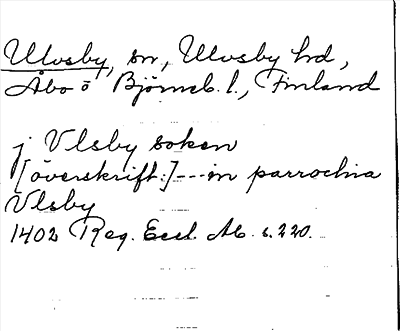 Ulvsby, sn, Ulvsby hrd,
Åbo o Björneb. l., Finland
j Vlsby soken
[överskrift:]---in parrochia
Vlsby
1402 Reg. Eccl. Ab. s. 220.